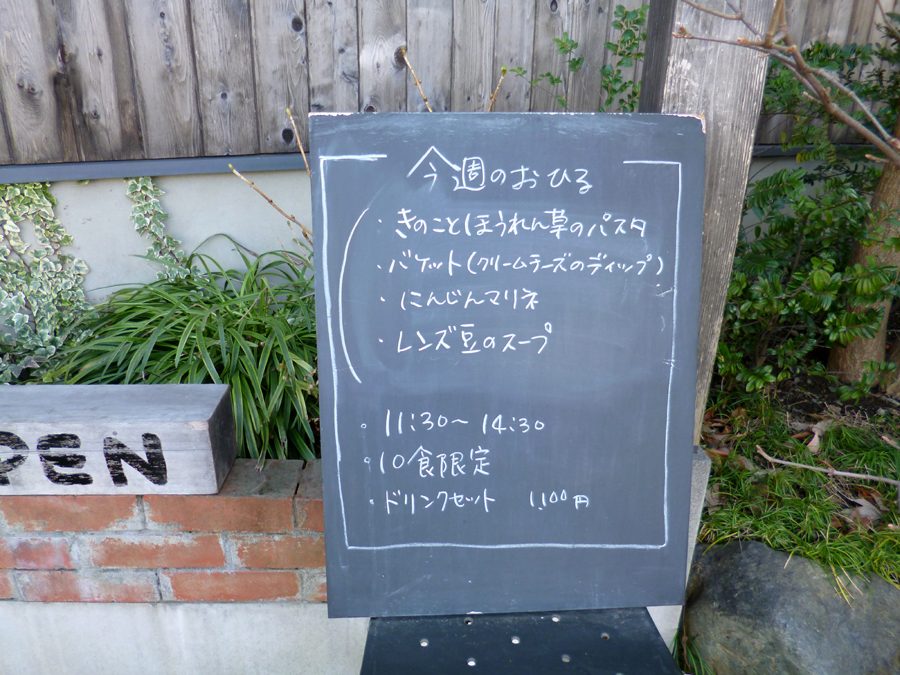 今週のおひる
・きのことほうれん草のパスタ
・バゲット(クリームチーズのディップ)
・にんじんマリネ
・レンズ豆のスープ
。11:30～14:30
。10食限定
。ドリンクセット 1,100円
PEN